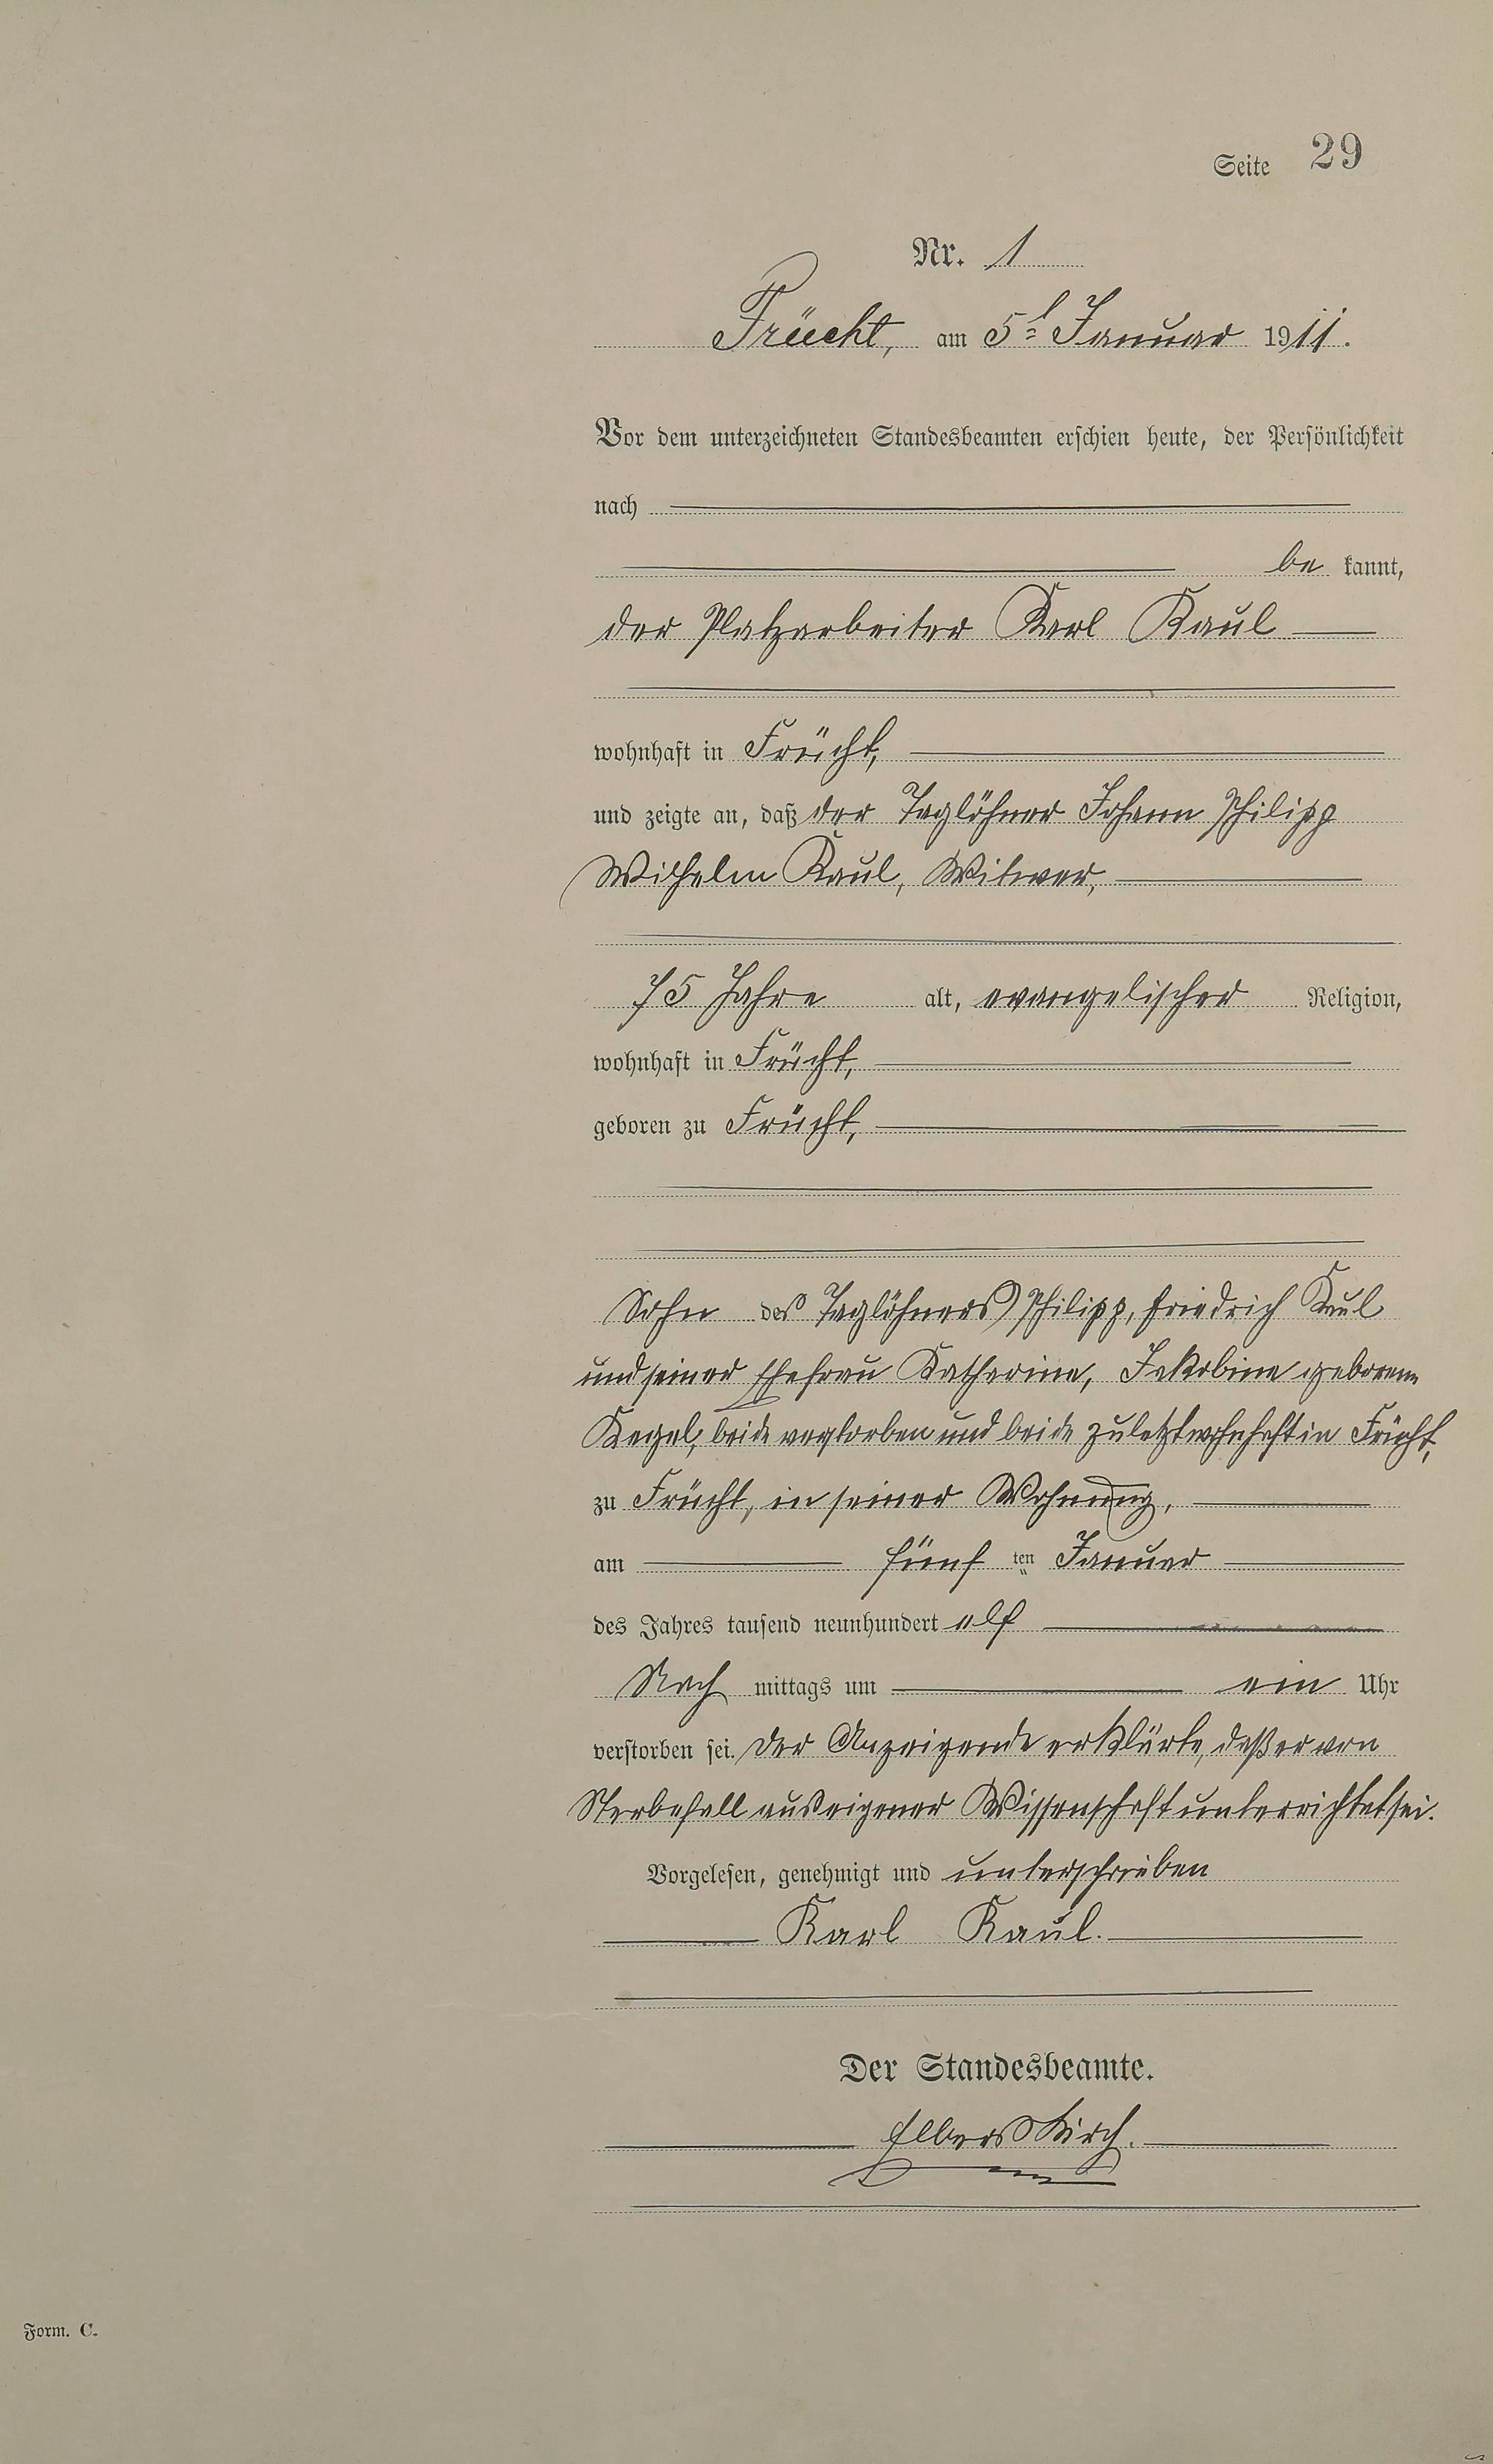 Seite 29
Nr. 1
Frücht, am 5t Januar 1911.
Vor dem unterzeichneten Standesbeamten erschien heute, der Persönlichkeit
nach
be kannt,
der Platzarbeiter Karl Kaul
wohnhaft in Frücht,
und zeigte an, daß der Taglöhner Johann Philipp
Wilhelm Kaul, Witwer,
75 Jahre alt, evangelischer Religion,
wohnhaft in Frücht,
geboren zu Frücht,
Sohn des Taglöhners Philipp, Friedrich Kaul
und seiner Ehefrau Katharine, Jakobine geborene
Kegel, beide verstorben und beide zuletzt wohnhaft in Frücht,
zu Frücht, in seiner Wohnung,
am fünf ten Januar
des Jahres tausend neunhundert elf
Nach mittags um ein Uhr
verstorben sei. Der Anzeigende erklärte, daß er von
Sterbefall aus eigener Wissenschaft unterrichtet sei.
Vorgelesen, genehmigt und unterschrieben
Karl Kaul.
Der Standesbeamte.
Elberskirch.
Form. C.